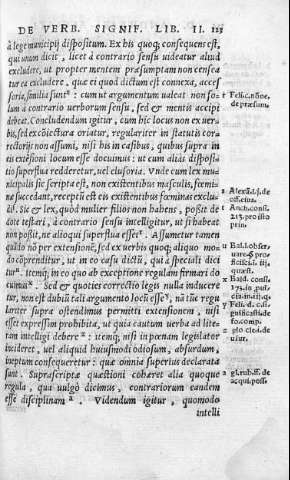 DE VERB. SIGNIF. LIB. II. 123
à lege municipij dispositum. Ex his quoq; consequens est,
qui unum dicit, licet à contrario sensu uideatur aliud
excludere, ut propter mentem præsumptam non censea
tur ea excludere, quæ ei quod dictum est connexa, acces
soria, similia sunt: cum ut argumentum ualeat non so-
lum à contrario uerborum sensu, sed & mentis accipi
debeat. Concludendum igitur, cum hic locus non ex uer-
bis, sed ex cōiectura oriatur, regulariter in statutis cor-
rectorijs non assumi, nisi his in casibus, quibus supra in
eis extēsioni locum esse diximus: ut cum alias disposi-
tio superflua redderetur, uel elusoria. Vnde cum lex mu-
nicipalis sic scripta est, non existentibus masculis, fœmi-
næ succedant, receptū est eis existentibus fœminas exclu-
di. Sic & lex, quòd mulier filios non habens, poßit de
dote testari, à contrario sensu intelligitur, ut si habeat
non poßit, ne alioqui superflua esset. Assumetur tamen
quādo nō per extensionē, sed ex uerbis quoq; aliquo mo-
do cōprenditur, ut in eo casu dictū, qui à speciali dici
tur. itemq; in eo quo ab exceptione regulam firmari do
cuimus. Sed & quoties correctio legis nulla inducere
tur, non est dubiū tali argumento locū esse, nā tūc regu
lariter supra ostendimus permitti extensionem, nisi
esset expressim prohibita, ut quia cautum uerba ad lite-
ram intelligi debere: itemq; nisi in pœnam legislator
incideret, uel aliquid huiusmodi odiosum, absurdum,
ineptum consequeretur: quæ omnia superius declarata
sunt. Suprascriptæ quæstioni cohæret alia quoque
regula, qua uulgò dicimus, contrariorum eandem
esse disciplinam. Videndum igitur, quomodo
intelli
Felic. nōne.
de præsum.
officiis.
Anch. cons.
215. pro isto
prin.
Bald. cons.
Felī. de cō
gl. rub. ff. de
acqui. poss.